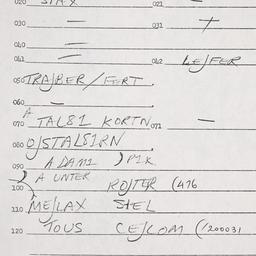 020 STAX 021 —
030 — 031 +
040 —
041 — 042 LE/FER
050 TRA/BER/FERT.
060 —
070 TAL81 KORTN 071 —
080 O/STAL81RN
090 A DAM1 ) P1K
100 A UNTER RO/TER (476
110 ME/LAX STEL
120 TOUS CE/COM (/200031